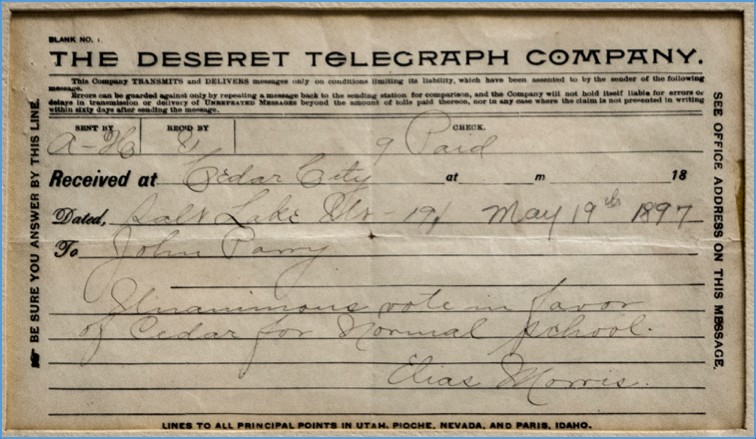 BLANK NO. 1.
THE DESERET TELEGRAPH COMPANY.
This Company TRANSMITS and DELIVERS messages only on conditions limiting its liability, which have been assented to by the sender of the following message.
Errors can be guarded against only by repeating a message back to the sending station for comparison, and the Company will not hold itself liable for errors or
delays in transmission or delivery of UNREPEATED MESSAGES beyond the amount of tolls paid thereon, nor in any case where the claim is not presented in writing
within sixty days after sending the message.
SENT BY REC'D BY CHECK.
9 Paid
Received at Cedar City at m 18
Dated, Salt Lake May 19th 1897
To John Parry
Unanimous vote in favor
of Cedar for Normal school.
Elias Morris.
LINES TO ALL PRINCIPAL POINTS IN UTAH, PIOCHE, NEVADA, AND PARIS, IDAHO.
BE SURE YOU ANSWER BY THIS LINE.
SEE OFFICE ADDRESS ON THIS MESSAGE.